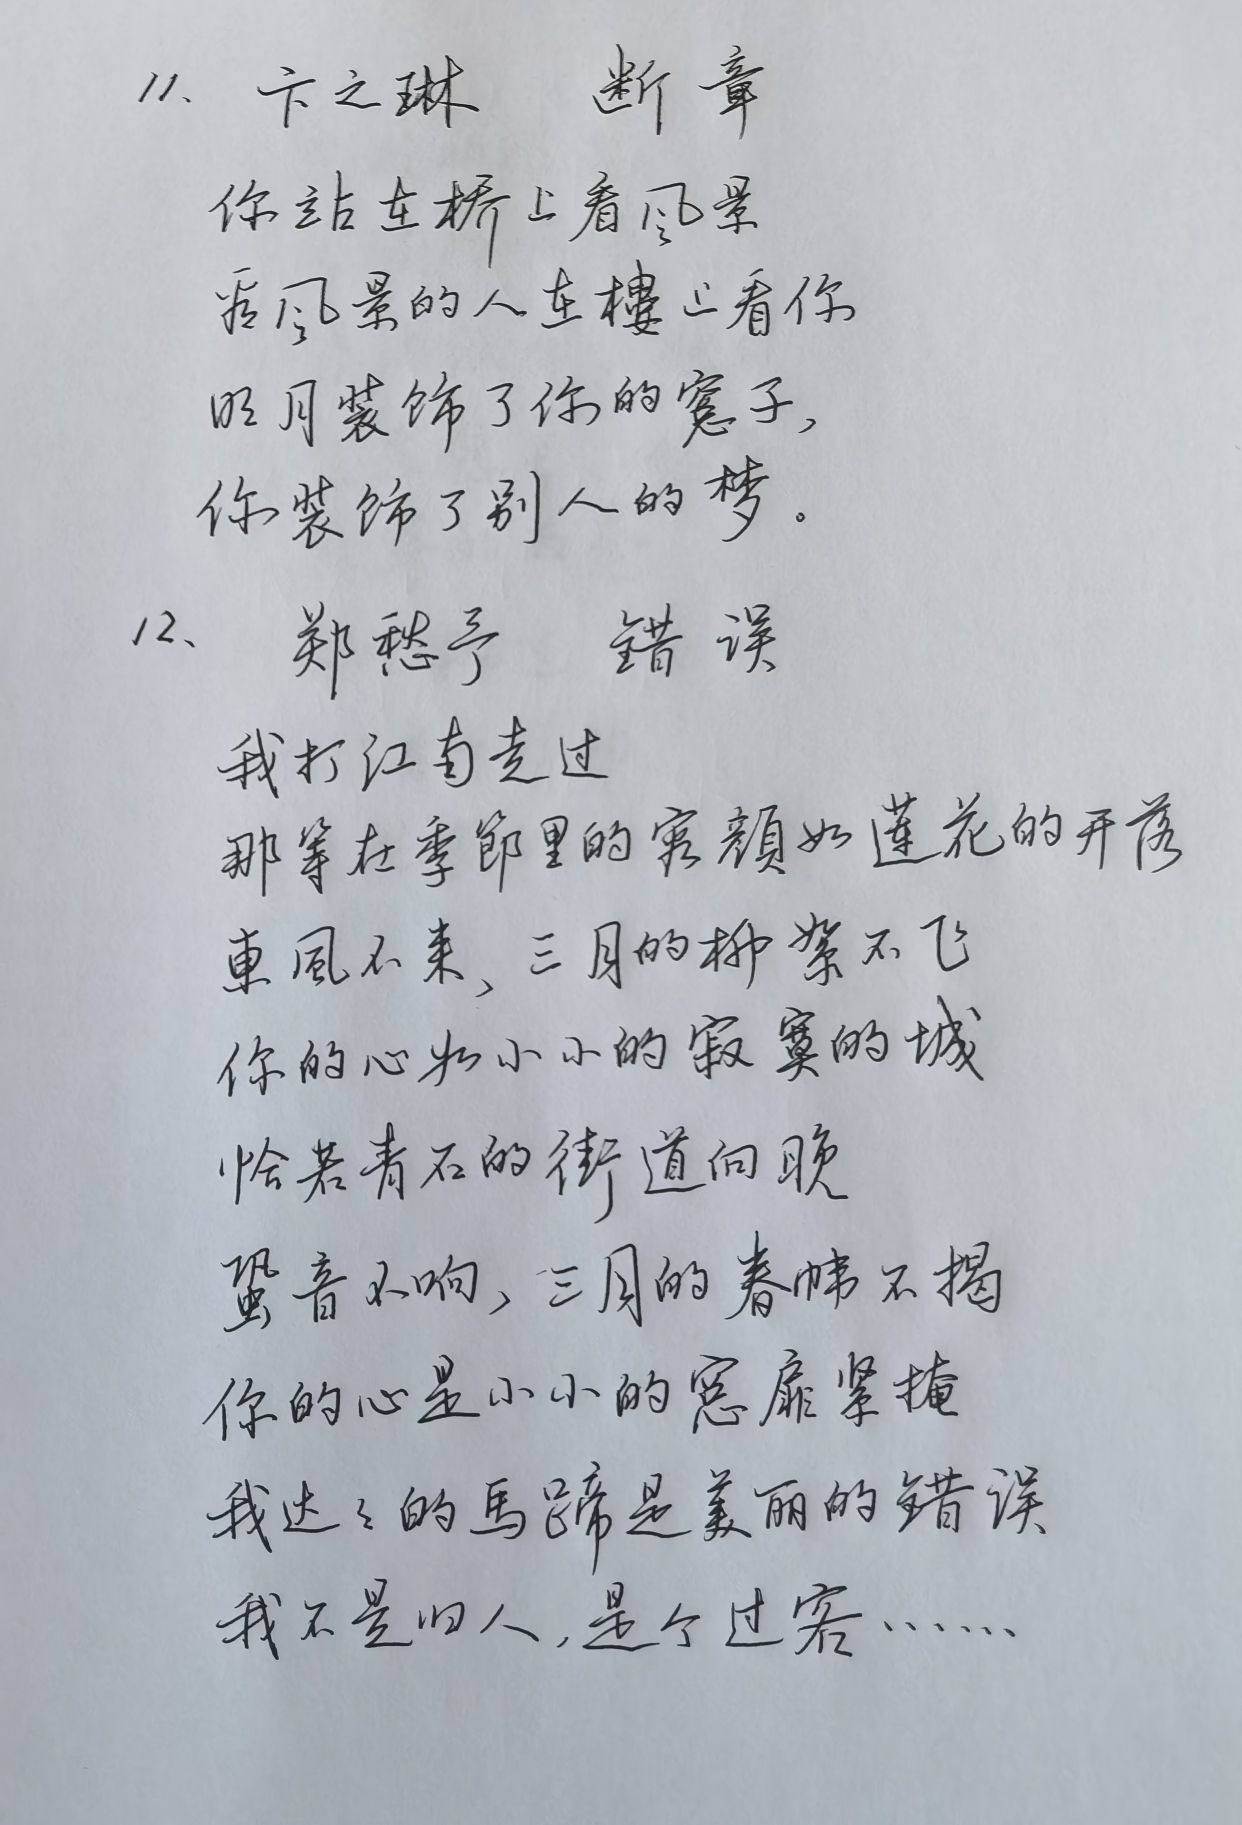 11、 卞之琳 断章
你站在桥上看风景
看风景的人在樓上看你
明月装饰了你的窻子，
你装饰了别人的梦。
12、 郑愁予 错误
我打江南走过
那等在季節里的容顔如莲花的开落
東風不来，三月的柳絮不飞
你的心如小小的寂寞的城
恰若青石的街道向晚
蛩音不响，三月的春帏不揭
你的心是小小的窓扉紧掩
我达々的馬蹄是美丽的错误
我不是归人，是个过客……